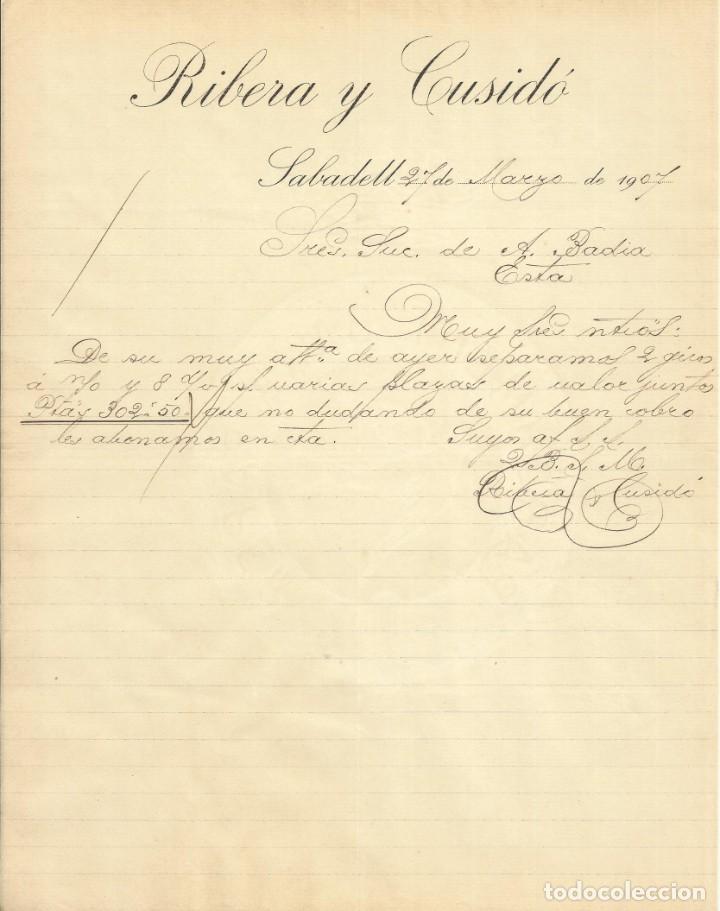 Ribera y Cusidó
Sabadell 27 de Marzo de 1907
Sres. Suc. de A. Badia
Esta
Muy Sres ntros:
De su muy att.ª de ayer separamos 2 giros
á n/o y 8 d/v s/. varias plazas de valor juntos
Ptas 302'50. que no dudando de su buen cobro
les abonamos en cta. Suyos af. S. S.
Q. B. S. M.
Ribera y Cusidó
todocoleccion.net